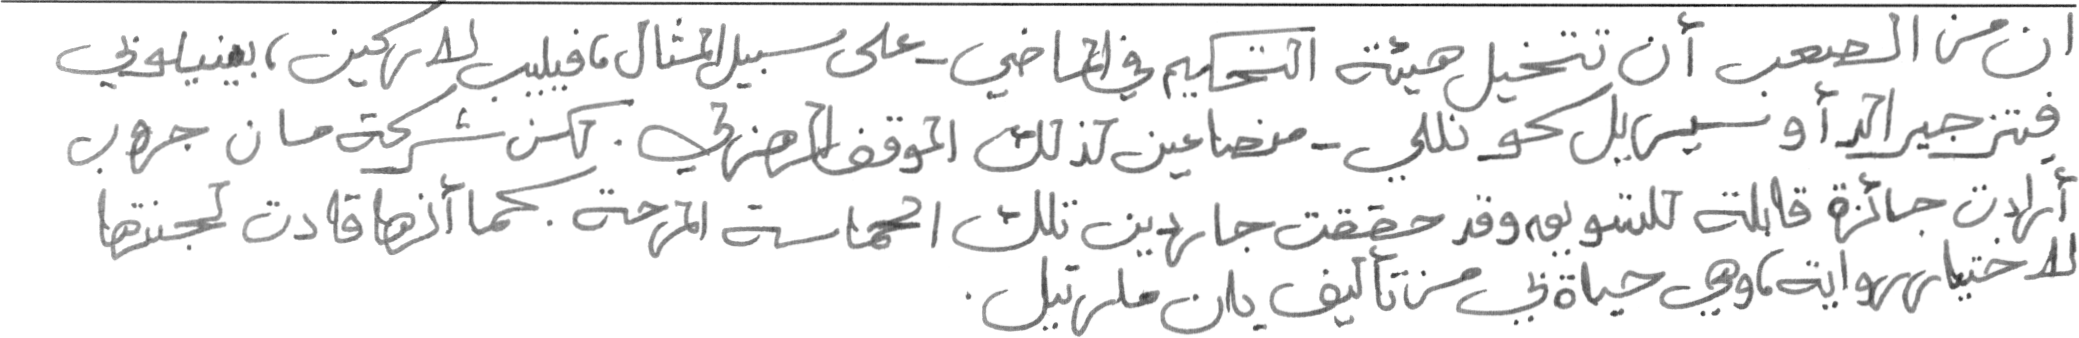 ان من الصعب أن تتخيل هيئة التحكيم في الماضي - على سبيل المثال، فيليب لاركين، بينيلوبي
فيتزجيرالد أو سيريل كونللي - منصاعين لذلك الموقف الهزلي. لكن شركة مان جروب
أرادت جائزة قابلة للتسويق وقد حققت جاردين تلك الحماسة المرحة. كما أنها قادت لجنتها
لاختيار رواية، وهي حياة بي من تأليف يان مارتيل.